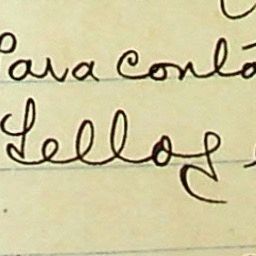 Para contá
Sellos